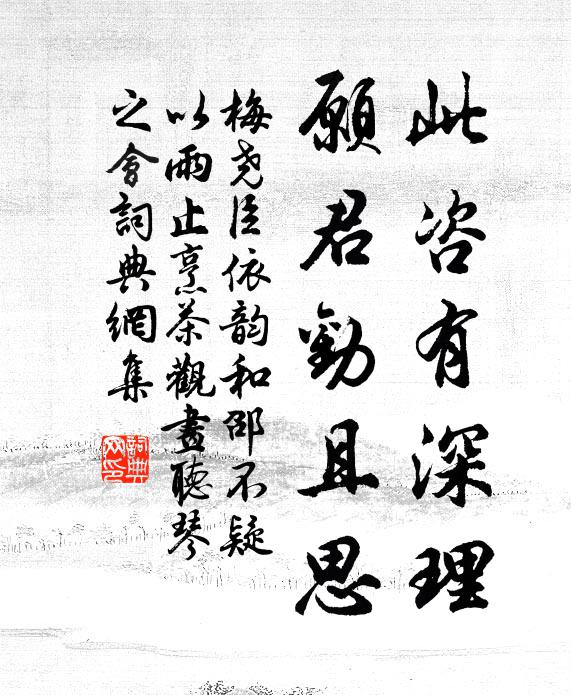 此咨有深理
願君勤且思
梅堯臣依韵和邵不疑
以雨止烹茶觀畫聽琴
之會詞典網集
詞典
网印